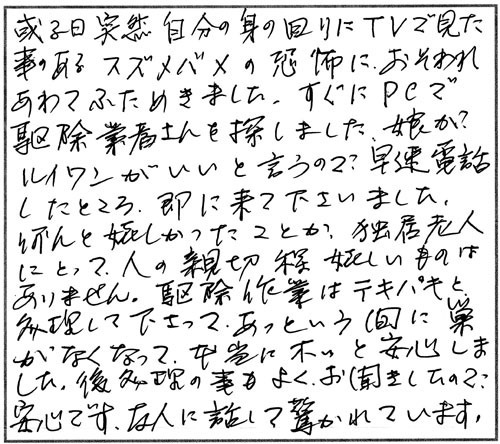 或る日突然自分の身の回りにTVで見た
事のあるスズメバメの恐怖に、おそわれ
あわてふためきました。すぐにPCで
駆除業者さんを探しました、娘が?
ルイワンがいいと言うので?早速電話
したところ、即に来て下さいました。
何んと嬉しかったことか、独居老人
にとって、人の親切程嬉しいものは
ありません。駆除作業はテキパキと
処理して下さって、あっという間に巣
がなくなって、本当にホッと安心しま
した。後処理の事もよく、お聞きしたので?
安心です、友人に話して驚かれています。